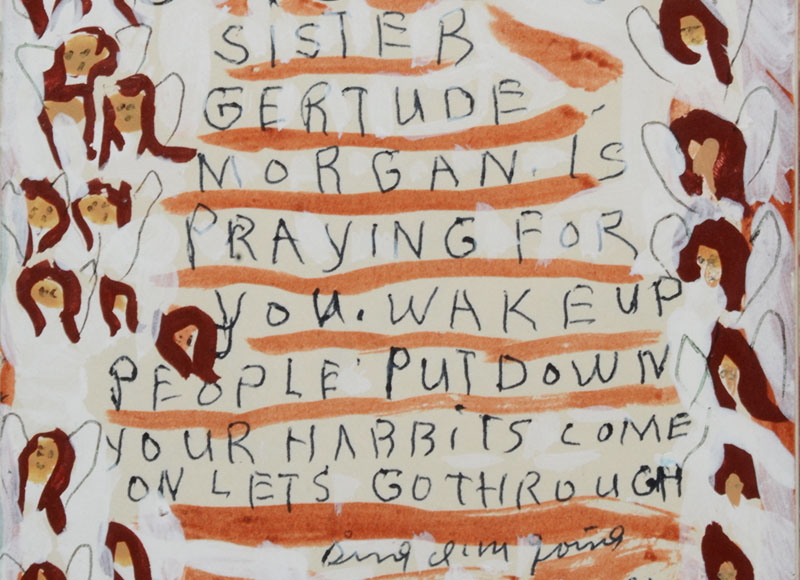 SISTER
GERTUDE
MORGAN. IS
PRAYING FOR
YOU. WAKE UP
PEOPLE PUT DOWN
YOUR HABBITS COME
ON LETS GO THROUGH